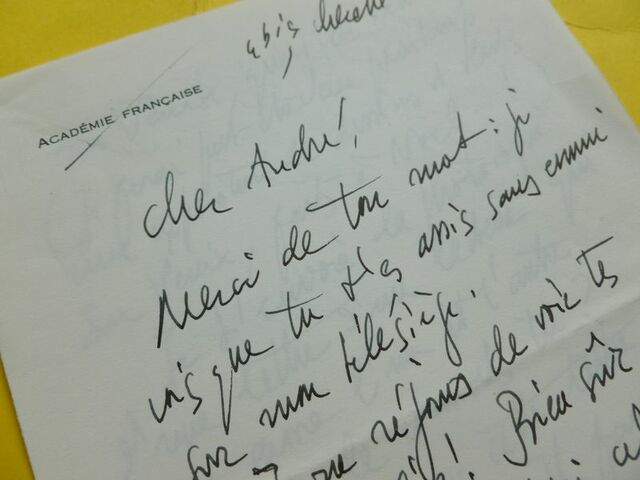 ACADÉMIE FRANÇAISE
cher André,
Merci de ton mot : je
vois que tu t'es assis sans ennui
sur mon télésiège.
me réjouis de voir tes
! Bien sûr